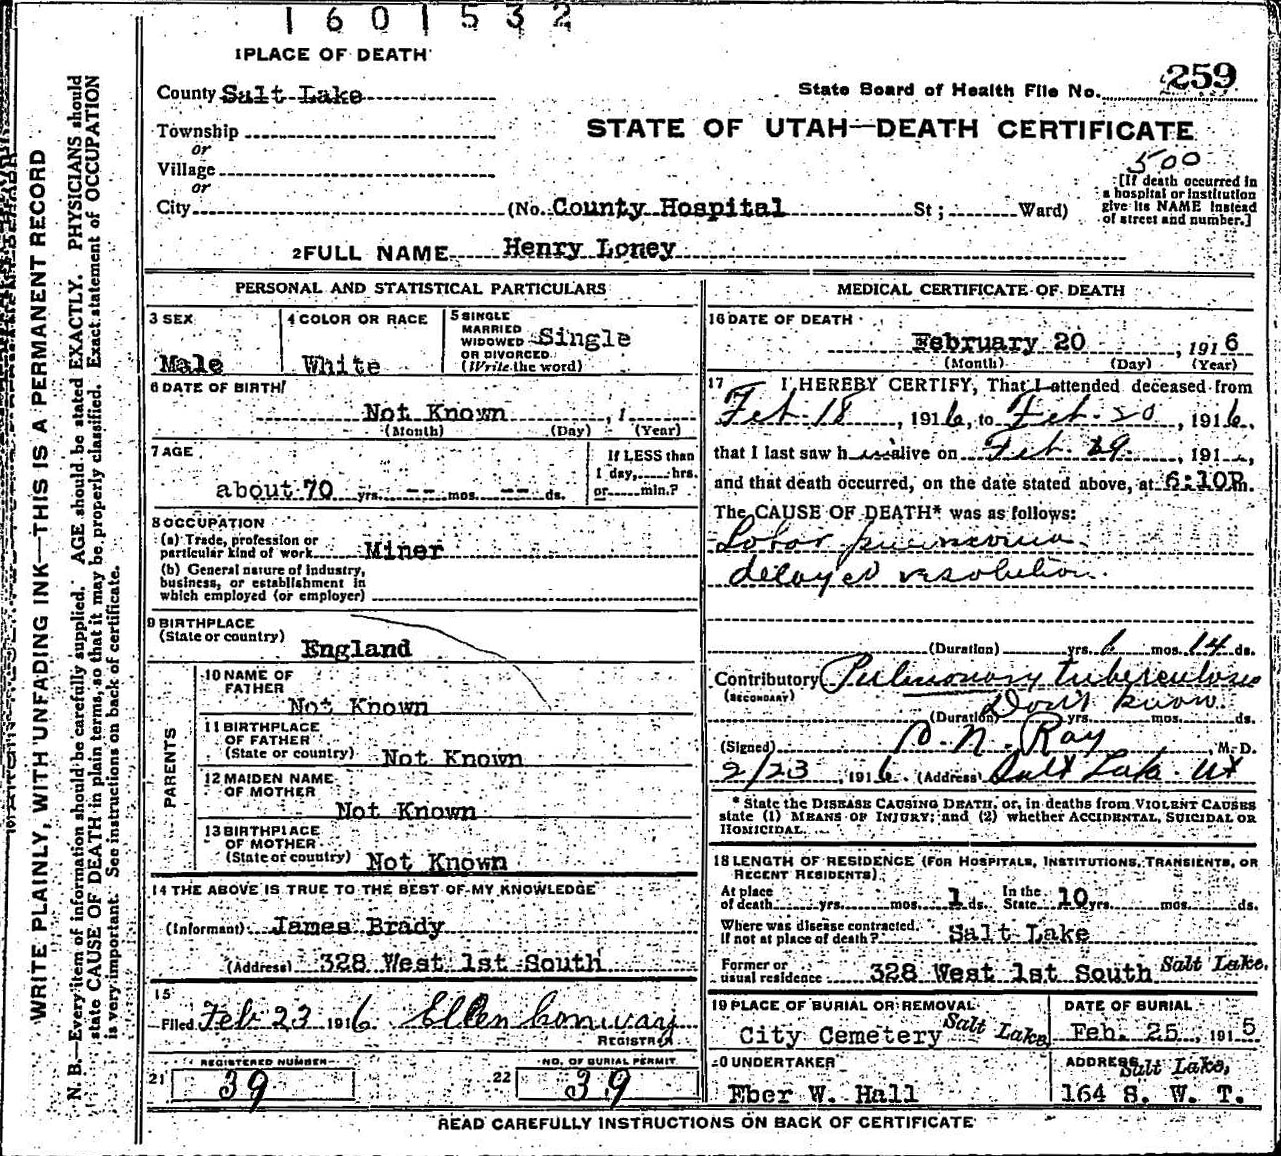 1601532
1 PLACE OF DEATH
County Salt Lake
State Board of Health File No. 259
Township
or
STATE OF UTAH—DEATH CERTIFICATE
Village
or
500
City (No. County Hospital St; Ward)
[If death occurred in a hospital or institution give its NAME instead of street and number.]
2 FULL NAME Henry Loney
PERSONAL AND STATISTICAL PARTICULARS
3 SEX
Male
4 COLOR OR RACE
White
5 SINGLE MARRIED WIDOWED OR DIVORCED (Write the word)
Single
6 DATE OF BIRTH
Not Known , 1
(Month) (Day) (Year)
7 AGE
about 70 yrs. -- mos. -- ds.
If LESS than 1 day, hrs. or min.?
8 OCCUPATION
(a) Trade, profession or particular kind of work Miner
(b) General nature of industry, business, or establishment in which employed (or employer)
9 BIRTHPLACE
(State or country) England
PARENTS
10 NAME OF FATHER
Not Known
11 BIRTHPLACE OF FATHER
(State or country) Not Known
12 MAIDEN NAME OF MOTHER
Not Known
13 BIRTHPLACE OF MOTHER
(State or country) Not Known
14 THE ABOVE IS TRUE TO THE BEST OF MY KNOWLEDGE
(Informant) James Brady
(Address) 328 West 1st South
15
Filed Feb 23 1916 Ellen Conway
REGISTRAR
REGISTERED NUMBER
21 39
NO. OF BURIAL PERMIT
22 39
MEDICAL CERTIFICATE OF DEATH
16 DATE OF DEATH
February 20 , 1916
(Month) (Day) (Year)
17 I HEREBY CERTIFY, That I attended deceased from
Feb. 18 , 1916, to Feb. 20 , 1916,
that I last saw him alive on Feb. 19. , 191 ,
and that death occurred, on the date stated above, at 6:10P.m.
The CAUSE OF DEATH* was as follows:
Lobar pneumonia
delayed resolution.
(Duration) yrs. mos. 14 ds.
Contributory Pulmonary tuberculosis
(SECONDARY)
Don't know.
(Duration) yrs. mos. ds.
(Signed) Ray , M. D.
2/23 , 1916. (Address) Salt Lake Ut
* State the DISEASE CAUSING DEATH, or, in deaths from VIOLENT CAUSES
state (1) MEANS OF INJURY; and (2) whether ACCIDENTAL, SUICIDAL OR
HOMICIDAL.
18 LENGTH OF RESIDENCE (FOR HOSPITALS, INSTITUTIONS, TRANSIENTS, OR
RECENT RESIDENTS)
At place of death yrs. mos. 1 ds. In the State 10 yrs. mos. ds.
Where was disease contracted, if not at place of death? Salt Lake
Former or usual residence 328 West 1st South Salt Lake.
19 PLACE OF BURIAL OR REMOVAL
City Cemetery Salt Lake
DATE OF BURIAL
Feb. 25 , 1915
20 UNDERTAKER
Eber W. Hall
ADDRESS Salt Lake,
164 S. W. T.
READ CAREFULLY INSTRUCTIONS ON BACK OF CERTIFICATE
WRITE PLAINLY, WITH UNFADING INK—THIS IS A PERMANENT RECORD
N. B.—Every item of information should be carefully supplied. AGE should be stated EXACTLY. PHYSICIANS should
state CAUSE OF DEATH in plain terms, so that it may be properly classified. Exact statement of OCCUPATION
is very important. See instructions on back of certificate.